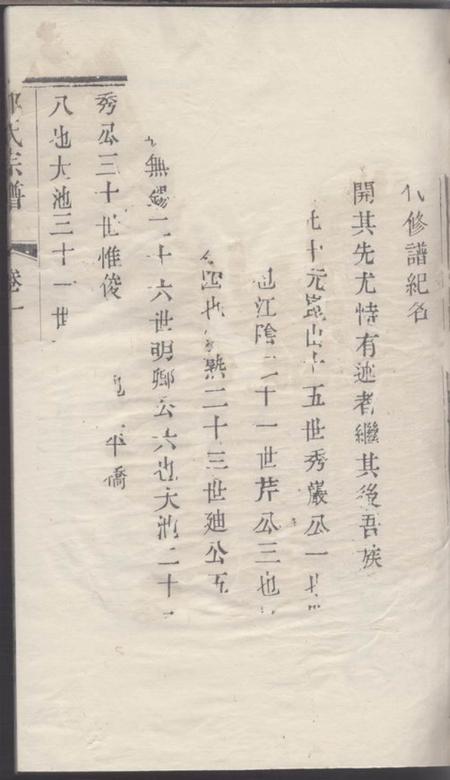 修譜紀名
開其先尤恃有述者繼其後吾族
十元崑山十五世秀巖公一
江陰二十一世芹公三也
四也 熟二十三世廸公五
無錫二十六世明卿公六也大池二十
秀公三十世惟俊 平橋
八也大池三十一世
氏宗譜 卷一